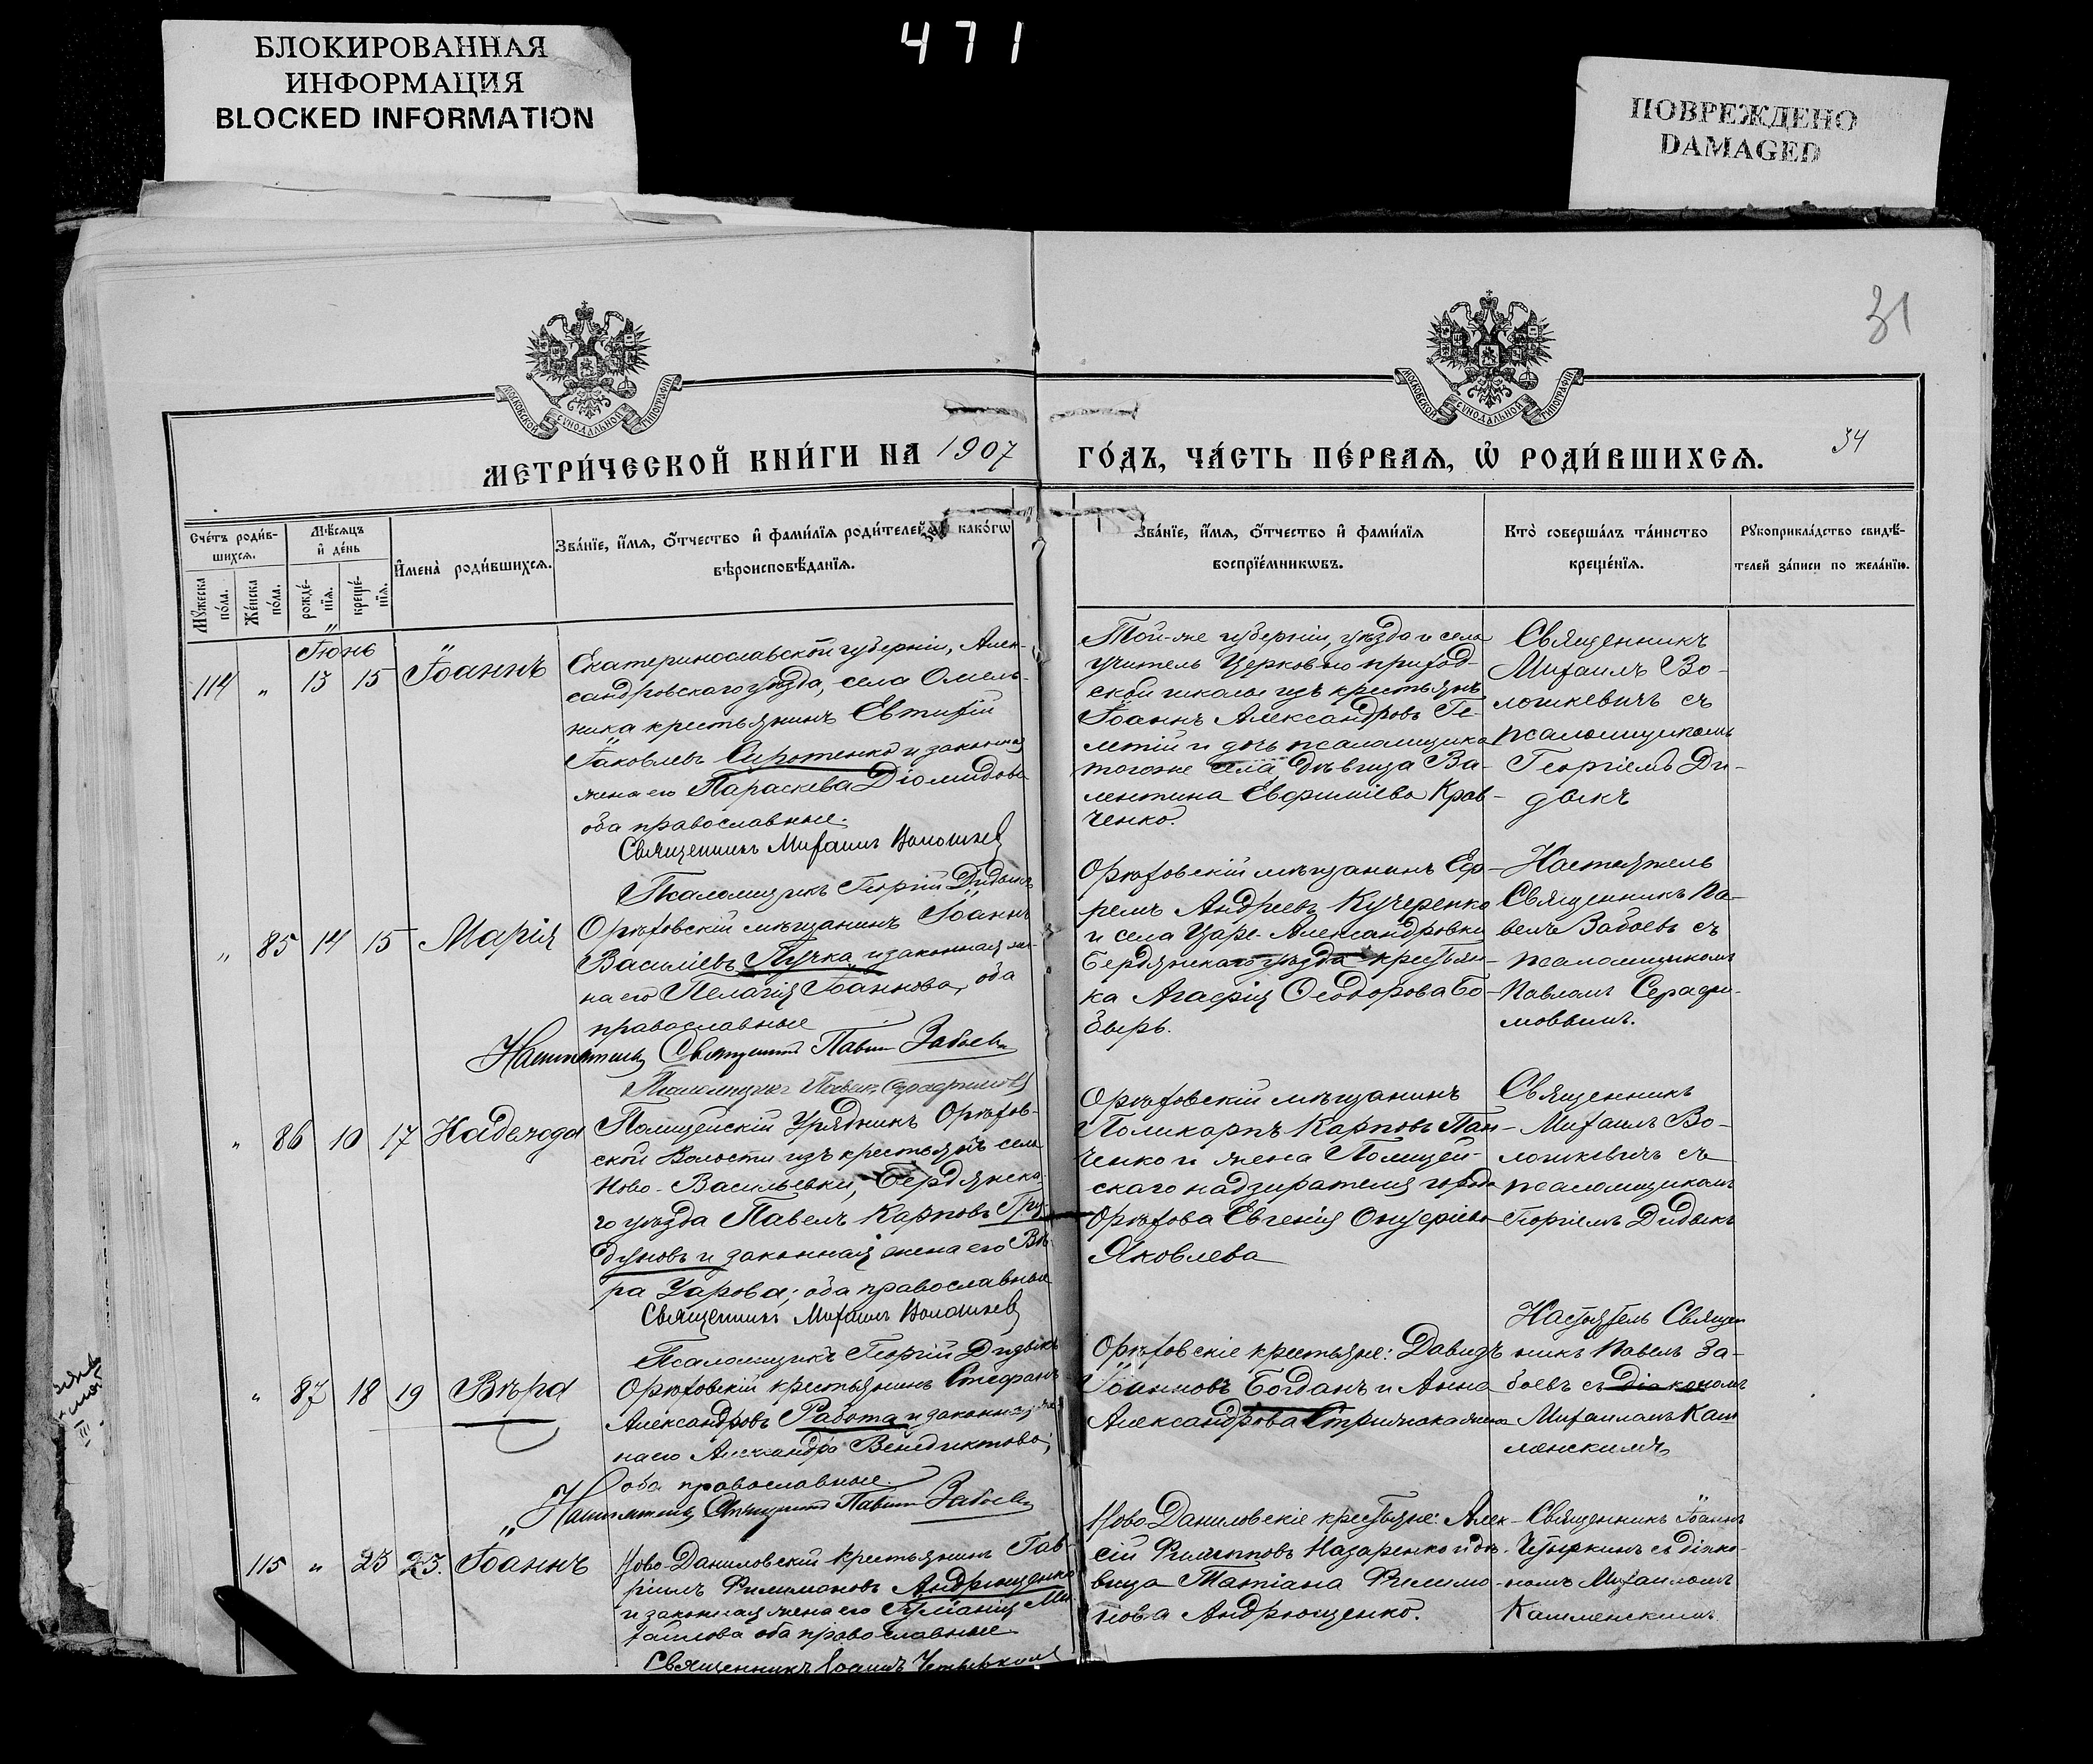 471
БЛОКИРОВАННАЯ
ИНФОРМАЦИЯ
BLOCKED INFORMATION
ПОВРЕЖДЕНО
DAMAGED
31
МОСКОВСКОЙ СѴНОДАЛЬНОЙ ТИПОГРАФІИ
МОСКОВСКОЙ СѴНОДАЛЬНОЙ ТИПОГРАФІИ
МЕТРИ́ЧЕСКОЙ КНИ́ГИ НА 1907 ГО́ДЪ, ЧА́СТЬ ПЕ́РВАЯ, Ѡ РОДИ́ВШИХСЯ.
34
Сче́тъ роди́в-
шихся.
Мѣ́сяцъ
и҆ де́нь
Мꙋжеска по́ла.
Же́нска по́ла.
рожде́-
нїя.
креще́-
нїя.
И҆мена̀ роди́вшихся.
Зва́нїе, и҆́мя, ѻ҆́тчество и҆ фами́лїя роди́телей, и҆ како́гѡ
вѣроисповѣ́данїя.
Зва́нїе, и҆́мя, ѻ҆́тчество и҆ фами́лїя
воспрїе́мникѡвъ.
Кто̀ соверша́лъ та́инство
креще́нїя.
Рꙋкоприкла́дство свидѣ́-
телей за́писи по жела́нїю.
Іюнь
114 „ 13 15 Іоаннъ
Екатеринославской губерніи, Алек-
сандровскаго уѣзда, села Омель-
ника крестьянинъ Евтихій
Іаковлевъ Сиротенко и законная
жена его Параскева Діомидова
оба православные.
Священникъ Михаилъ Волошкев
Псаломщикъ Георгій Дидыкъ
Той-же губерніи, уѣзда и села
учитель Церковно приход-
ской школы изъ крестьянъ
Іоаннъ Александровъ Ге-
летій и дочь псаломщика
тогоже села дѣвица Ва-
лентина Евфиміева Крав-
ченко.
Священникъ
Михаилъ Во-
лошкевичъ съ
псаломщикомъ
Георгіемъ Ди-
дыкъ
„ 85 14 15 Марія
Орѣховскій мѣщанинъ Іоаннъ
Василіевъ Пучка и законная же-
на его Пелагія Іоаннова, оба
православные
Настоятель Священникъ Павелъ Забоевъ
Псаломщикъ Павелъ Серафимовъ
Орѣховскій мѣщанинъ Еф-
ремъ Андреевъ Кучеренко
и села Царе-Александровки
Бердянскаго уѣзда крестьян-
ка Агафія Ѳеодорова Бо-
бырь.
Настоятель
Священникъ Па-
велъ Забоевъ съ
псаломщикомъ
Павломъ Серафи-
мовымъ.
„ 86 10 17 Надежда
Полицейскій Урядникъ Орѣхов-
ской Волости изъ крестьянъ села
Ново-Васильевки, Бердянска-
го уѣзда Павелъ Карповъ Гри-
дуновъ и законная жена его Вѣ-
ра Уарова; оба православные
Священникъ Михаилъ Волошкев
Псаломщикъ Георгій Дидыкъ
Орѣховскій мѣщанинъ
Поликарпъ Карповъ Пан-
ченко и жена Полицей-
скаго надзирателя города
Орѣхова Евгенія Онуфріева
Яковлева
Священникъ
Михаилъ Во-
лошкевичъ съ
псаломщикомъ
Георгіемъ Дидыкъ
„ 87 18 19 Вѣра
Орѣховскій крестьянинъ Стефанъ
Александровъ Работа и законная же-
на его Александра Венедиктова;
оба православные.
Настоятель Священникъ Павелъ Забоевъ
Орѣховскіе крестьяне: Давидъ
Іоанновъ Богданъ и Анна
Александрова Стрижака жена
Настоятель Священ
никъ Павелъ За-
боевъ съ діакономъ
Михаиломъ Каш
менскимъ
115 „ 23 23. Іоаннъ
Ново Даниловскій крестьянинъ Гав-
ріилъ Филимоновъ Андрющенко
и законная жена его Іуліанія Ми-
хаилова оба православные
Священникъ Іоаннъ
Ново Даниловскіе крестьяне: Алек-
сій Филипповъ Назаренко и дѣ-
вица Татіана Филимо-
нова Андрющенко.
Священникъ Іоаннъ
съ діако-
номъ Михаиломъ
Кашменскимъ